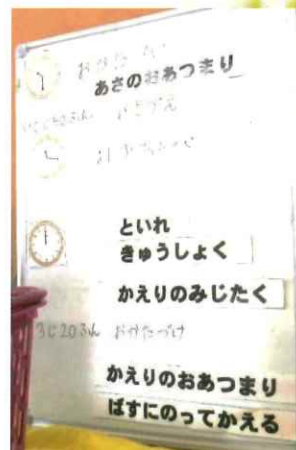 おかたづけ
あさのおあつまり
といれ
きゅうしょく
かえりのみじたく
3じ20ぷん おかたづけ
かえりのおあつまり
ばすにのってかえる